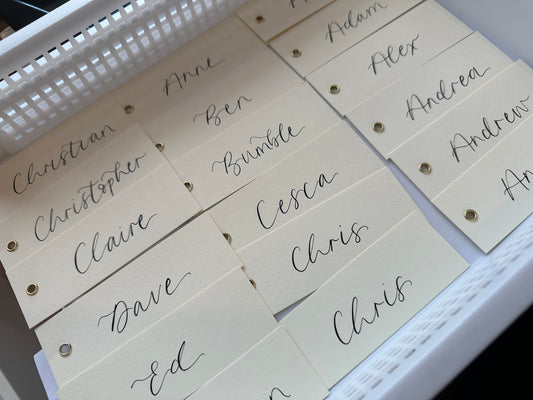 Christian
Christopher
Claire
Dave
Ed
Anne
Ben
Bumble
Cesca
Chris
Chris
Adam
Alex
Andrea
Andrew